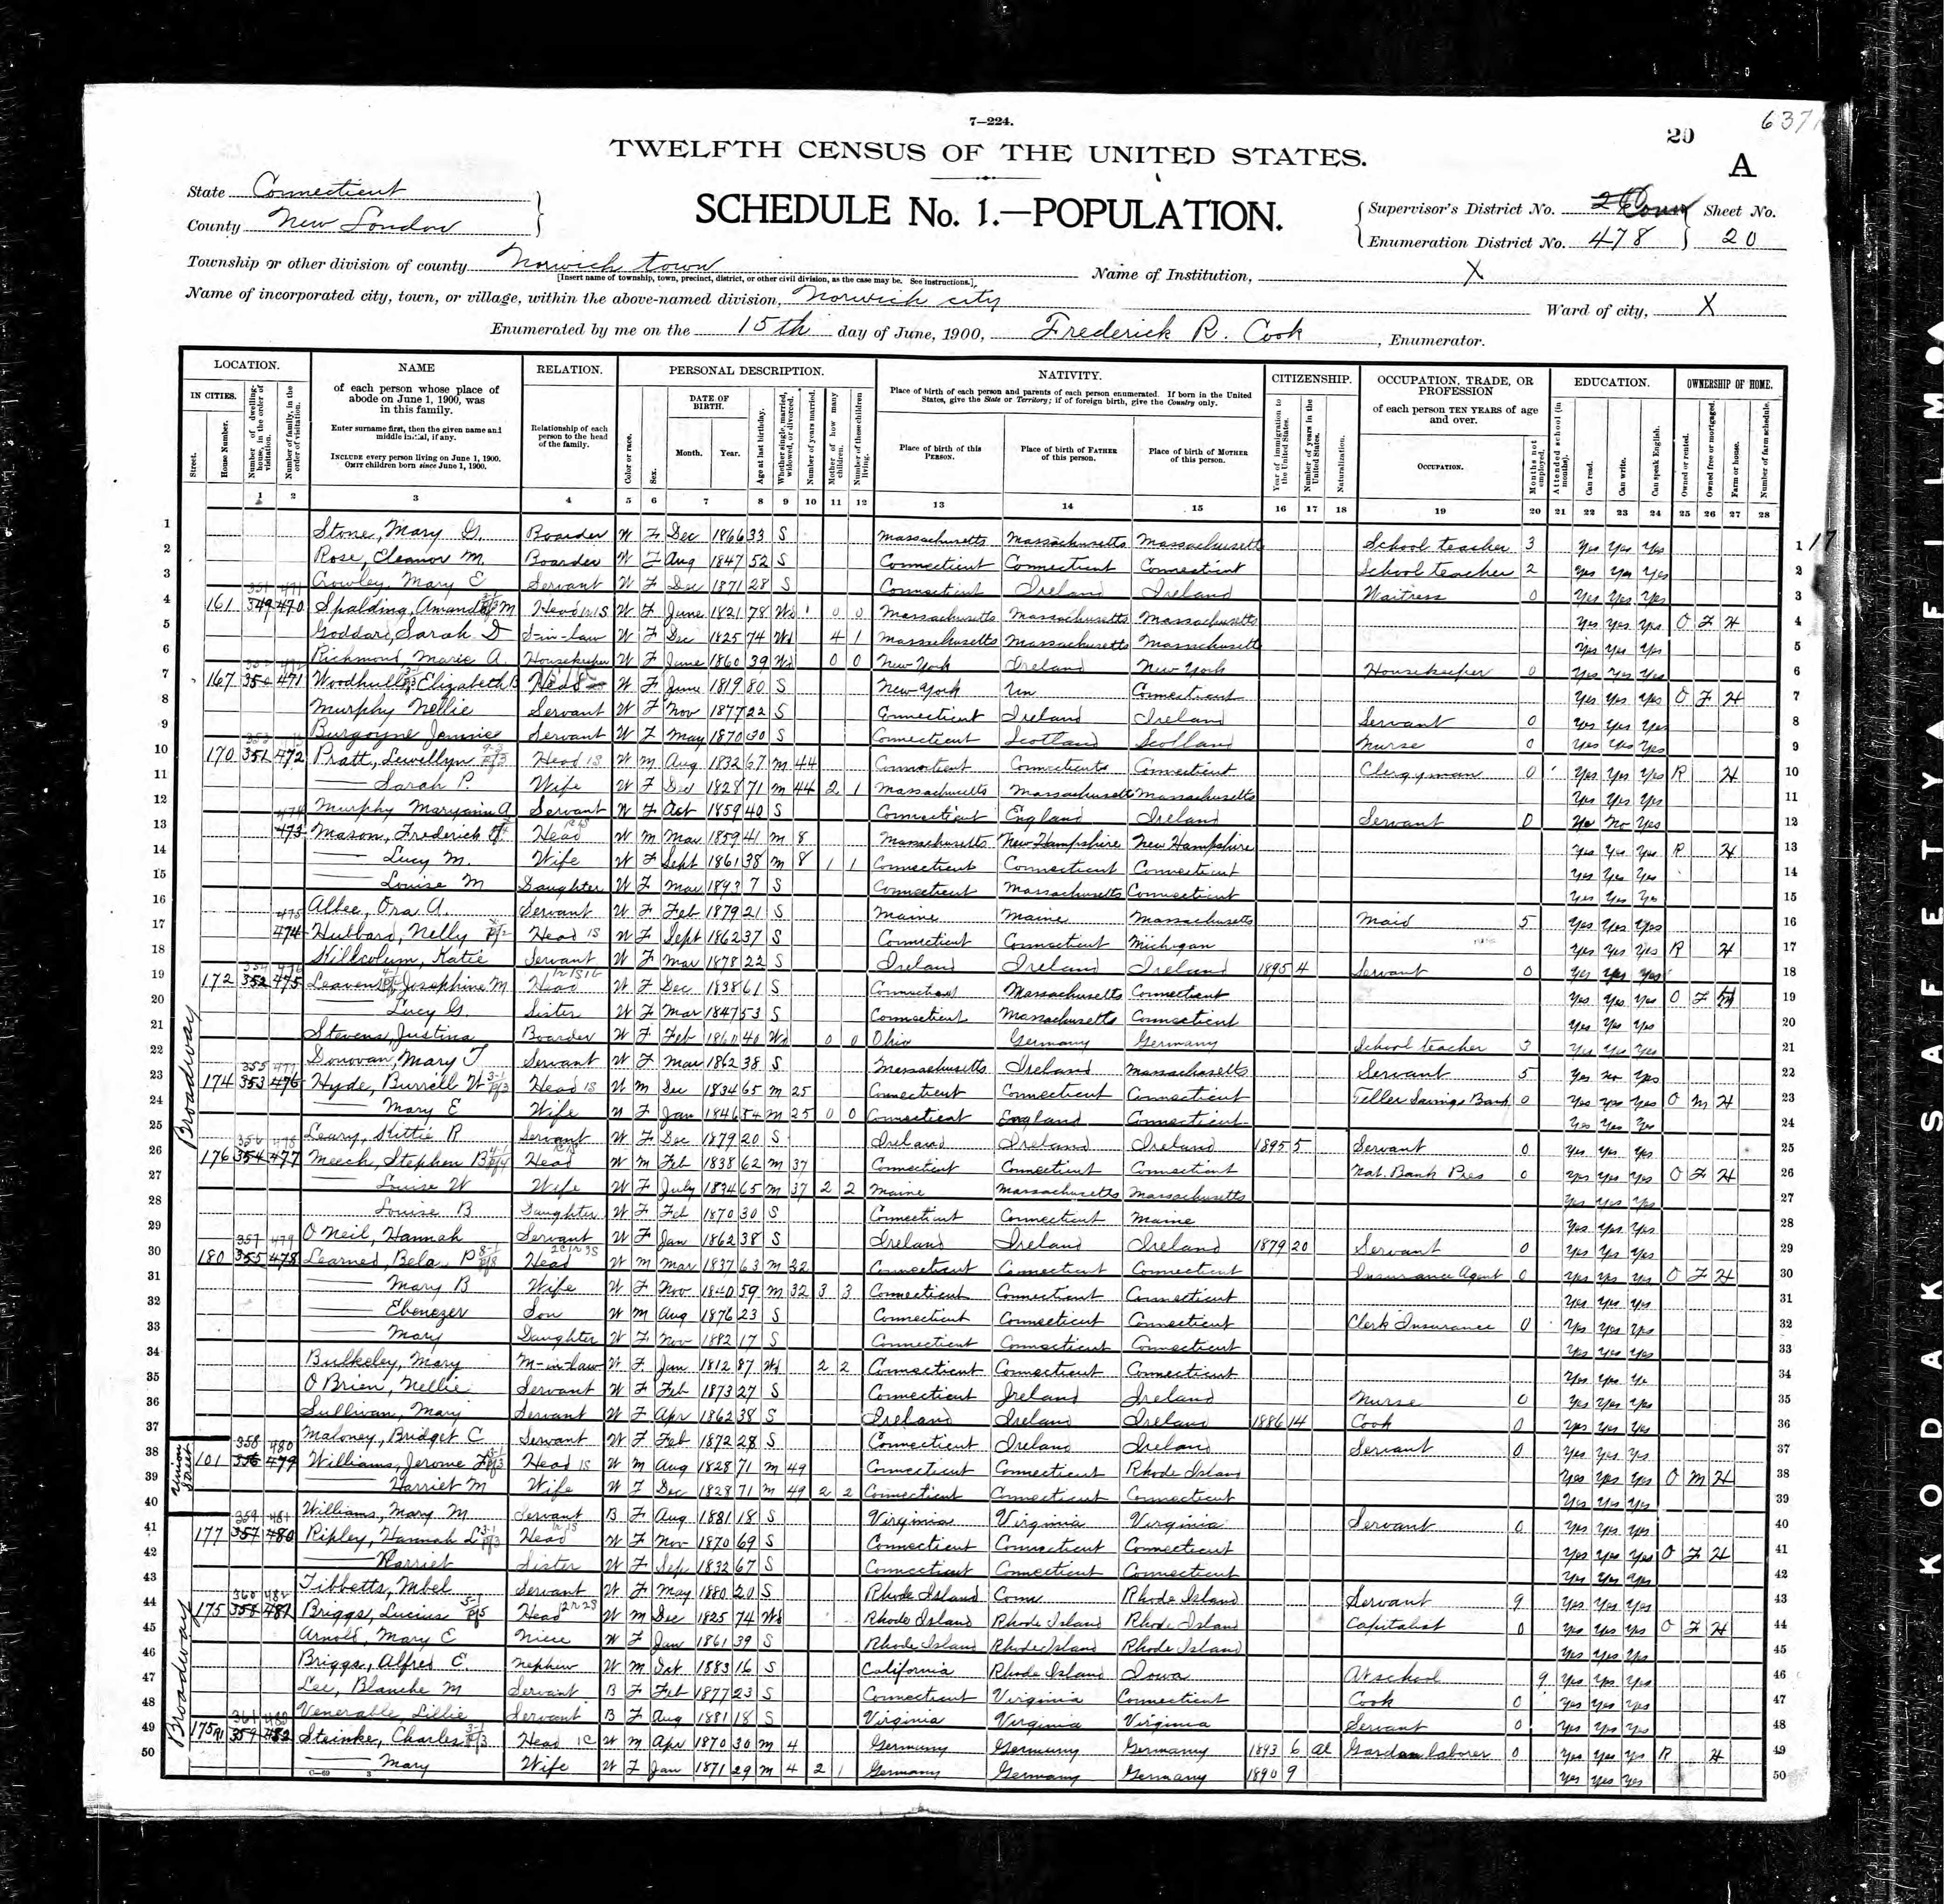 7—224.
637
20
A
TWELFTH CENSUS OF THE UNITED STATES.
State Connecticut
County New London
SCHEDULE No. 1.—POPULATION.
Supervisor's District No. Sheet No.
Enumeration District No. 478 20
Township or other division of county Norwich town Name of Institution, X
[Insert name of township, town, precinct, district, or other civil division, as the case may be. See instructions.]
Name of incorporated city, town, or village, within the above-named division, Norwich city Ward of city, X
Enumerated by me on the 15th day of June, 1900, Frederick R. Cook, Enumerator.
LOCATION. NAME RELATION. PERSONAL DESCRIPTION. NATIVITY. CITIZENSHIP. OCCUPATION, TRADE, OR PROFESSION EDUCATION. OWNERSHIP OF HOME.
IN CITIES.
Street.
House Number.
Number of dwelling-house, in the order of visitation.
Number of family, in the order of visitation.
of each person whose place of abode on June 1, 1900, was in this family.
Enter surname first, then the given name and middle initial, if any.
INCLUDE every person living on June 1, 1900.
OMIT children born since June 1, 1900.
Relationship of each person to the head of the family.
Color or race.
Sex.
DATE OF BIRTH.
Month. Year.
Age at last birthday.
Whether single, married, widowed, or divorced.
Number of years married.
Mother of how many children.
Number of these children living.
Place of birth of each person and parents of each person enumerated. If born in the United States, give the State or Territory; if of foreign birth, give the Country only.
Place of birth of this PERSON.
Place of birth of FATHER of this person.
Place of birth of MOTHER of this person.
Year of immigration to the United States.
Number of years in the United States.
Naturalization.
of each person TEN YEARS of age and over.
OCCUPATION.
Months not employed.
Attended school (in months).
Can read.
Can write.
Can speak English.
Owned or rented.
Owned free or mortgaged.
Farm or house.
Number of farm schedule.
1 2 3 4 5 6 7 8 9 10 11 12 13 14 15 16 17 18 19 20 21 22 23 24 25 26 27 28
1 Stone, Mary G. Boarder W F Dec 1866 33 S Massachusetts Massachusetts Massachusetts School teacher 3 Yes Yes Yes 1
2 Rose, Eleanor M. Boarder W F Aug 1847 52 S Connecticut Connecticut Connecticut School teacher 2 Yes Yes Yes 2
3 Crowley, Mary E Servant W F Dec 1871 28 S Connecticut Ireland Ireland Waitress 0 Yes Yes Yes 3
4 161 349 470 Spalding, Amanda M Head W F June 1821 78 Wd 0 0 Massachusetts Massachusetts Massachusetts Yes Yes Yes O F H 4
5 Goddard, Sarah D S-in-law W F Dec 1825 74 Wd 4 1 Massachusetts Massachusetts Massachusetts Yes Yes Yes 5
6 Richmond, Marie A. Housekeeper W F June 1860 39 Wd 0 0 New York Ireland New York Housekeeper 0 Yes Yes Yes 6
7 167 350 471 Woodhull, Elizabeth B Head W F June 1819 80 S New York Un Connecticut Yes Yes Yes O F H 7
8 Murphy Nellie Servant W F Nov 1877 22 S Connecticut Ireland Ireland Servant 0 Yes Yes Yes 8
9 Burgoyne Jennie Servant W F May 1870 30 S Connecticut Scotland Scotland Nurse 0 Yes Yes Yes 9
10 170 351 472 Pratt, Lewellyn Head W M Aug 1832 67 M 44 Connecticut Connecticut Connecticut Clergyman 0 Yes Yes Yes R H 10
11 —— Sarah P. Wife W F Dec 1828 71 M 44 2 1 Massachusetts Massachusetts Massachusetts Yes Yes Yes 11
12 Murphy Maryann A Servant W F Oct 1859 40 S Connecticut England Ireland Servant 0 Yes No Yes 12
13 473 Mason, Frederick Head W M Mar 1859 41 M 8 Massachusetts New Hampshire New Hampshire Yes Yes Yes R H 13
14 —— Lucy M. Wife W F Sept 1861 38 M 8 1 1 Connecticut Connecticut Connecticut Yes Yes Yes 14
15 —— Louise M Daughter W F Mar 1893 7 S Connecticut Massachusetts Connecticut Yes Yes Yes 15
16 Albee, Ora A. Servant W F Feb 1879 21 S Maine Maine Massachusetts Maid 5 Yes Yes Yes 16
17 474 Hubbard, Nelly Head W F Sept 1862 37 S Connecticut Connecticut Michigan Yes Yes Yes R H 17
18 Killcolum, Katie Servant W F Mar 1878 22 S Ireland Ireland Ireland 1895 4 Servant 0 Yes Yes Yes 18
19 172 352 475 Leavens, Josephine M Head W F Dec 1838 61 S Connecticut Massachusetts Connecticut Yes Yes Yes O F H 19
20 —— Lucy G. Sister W F Mar 1847 53 S Connecticut Massachusetts Connecticut Yes Yes Yes 20
21 Stevens, Justina Boarder W F Feb 1860 40 Wd 0 0 Ohio Germany Germany School teacher 3 Yes Yes Yes 21
22 Donovan, Mary T Servant W F Mar 1862 38 S Massachusetts Ireland Massachusetts Servant 5 Yes No Yes 22
23 174 353 476 Hyde, Burrell W Head W M Dec 1834 65 M 25 Connecticut Connecticut Connecticut Teller Savings Bank 0 Yes Yes Yes O M H 23
24 —— Mary E Wife W F Jan 1846 54 M 25 0 0 Connecticut England Connecticut Yes Yes Yes 24
25 Leary, Kittie R Servant W F Dec 1879 20 S Ireland Ireland Ireland 1895 5 Servant 0 Yes Yes Yes 25
26 176 354 477 Meech, Stephen B Head W M Feb 1838 62 M 37 Connecticut Connecticut Connecticut Nat. Bank Pres 0 Yes Yes Yes O F H 26
27 —— Louise W Wife W F July 1834 65 M 37 2 2 Maine Massachusetts Massachusetts Yes Yes Yes 27
28 —— Louise B Daughter W F Feb 1870 30 S Connecticut Connecticut Maine Yes Yes Yes 28
29 O Neil, Hannah Servant W F Jan 1862 38 S Ireland Ireland Ireland 1879 20 Servant 0 Yes Yes Yes 29
30 180 355 478 Learned, Bela P Head W M Mar 1837 63 M 32 Connecticut Connecticut Connecticut Insurance Agent 0 Yes Yes Yes O F H 30
31 —— Mary B Wife W F Nov 1840 59 M 32 3 3 Connecticut Connecticut Connecticut Yes Yes Yes 31
32 —— Ebenezer Son W M Aug 1876 23 S Connecticut Connecticut Connecticut Clerk Insurance 0 Yes Yes Yes 32
33 —— Mary Daughter W F Nov 1882 17 S Connecticut Connecticut Connecticut Yes Yes Yes 33
34 Bulkeley, Mary M-in-law W F Jun 1812 87 Wd 2 2 Connecticut Connecticut Connecticut Yes Yes Ye 34
35 O Brien, Nellie Servant W F Feb 1873 27 S Connecticut Ireland Ireland Nurse 0 Yes Yes Yes 35
36 Sullivan, Mary Servant W F Apr 1862 38 S Ireland Ireland Ireland 1886 14 Cook 0 Yes Yes Yes 36
37 Maloney, Bridget C Servant W F Feb 1872 28 S Connecticut Ireland Ireland Servant 0 Yes Yes Yes 37
Union Street
38 101 356 479 Williams, Jerome F Head W M Aug 1828 71 M 49 Connecticut Connecticut Rhode Island Yes Yes Yes O M H 38
39 —— Harriet M Wife W F Dec 1828 71 M 49 2 2 Connecticut Connecticut Connecticut Yes Yes Yes 39
40 Williams, Mary M Servant B F Aug 1881 18 S Virginia Virginia Virginia Servant 0 Yes Yes Yes 40
41 177 357 480 Ripley, Hannah L Head W F Nov 1870 69 S Connecticut Connecticut Connecticut Yes Yes Yes O F H 41
42 —— Harriet Sister W F Sep 1832 67 S Connecticut Connecticut Connecticut Yes Yes Yes 42
43 Tibbetts, Mbel Servant W F May 1880 20 S Rhode Island Conn Rhode Island Servant 9 Yes Yes Yes 43
44 175 358 481 Briggs, Lucius Head W M Dec 1825 74 Wd Rhode Island Rhode Island Rhode Island Capitalist 0 Yes Yes Yes O F H 44
45 Arnold, Mary E Niece W F Jan 1861 39 S Rhode Island Rhode Island Rhode Island Yes Yes Yes 45
46 Briggs, Alfred E. Nephew W M Oct 1883 16 S California Rhode Island Iowa At school 9 Yes Yes Yes 46
47 Lee, Blanche M Servant B F Feb 1877 23 S Connecticut Virginia Connecticut Cook 0 Yes Yes Yes 47
48 Venerable Lillie Servant B F Aug 1881 18 S Virginia Virginia Virginia Servant 0 Yes Yes Yes 48
49 175 359 482 Steinke, Charles Head W M Apr 1870 30 M 4 Germany Germany Germany 1893 6 Al Garden laborer 0 Yes Yes Yes R H 49
50 —— Mary Wife W F Jan 1871 29 M 4 2 1 Germany Germany Germany 1890 9 Yes Yes Yes 50
Broadway
Broadway
KODAK SAFETY FILM